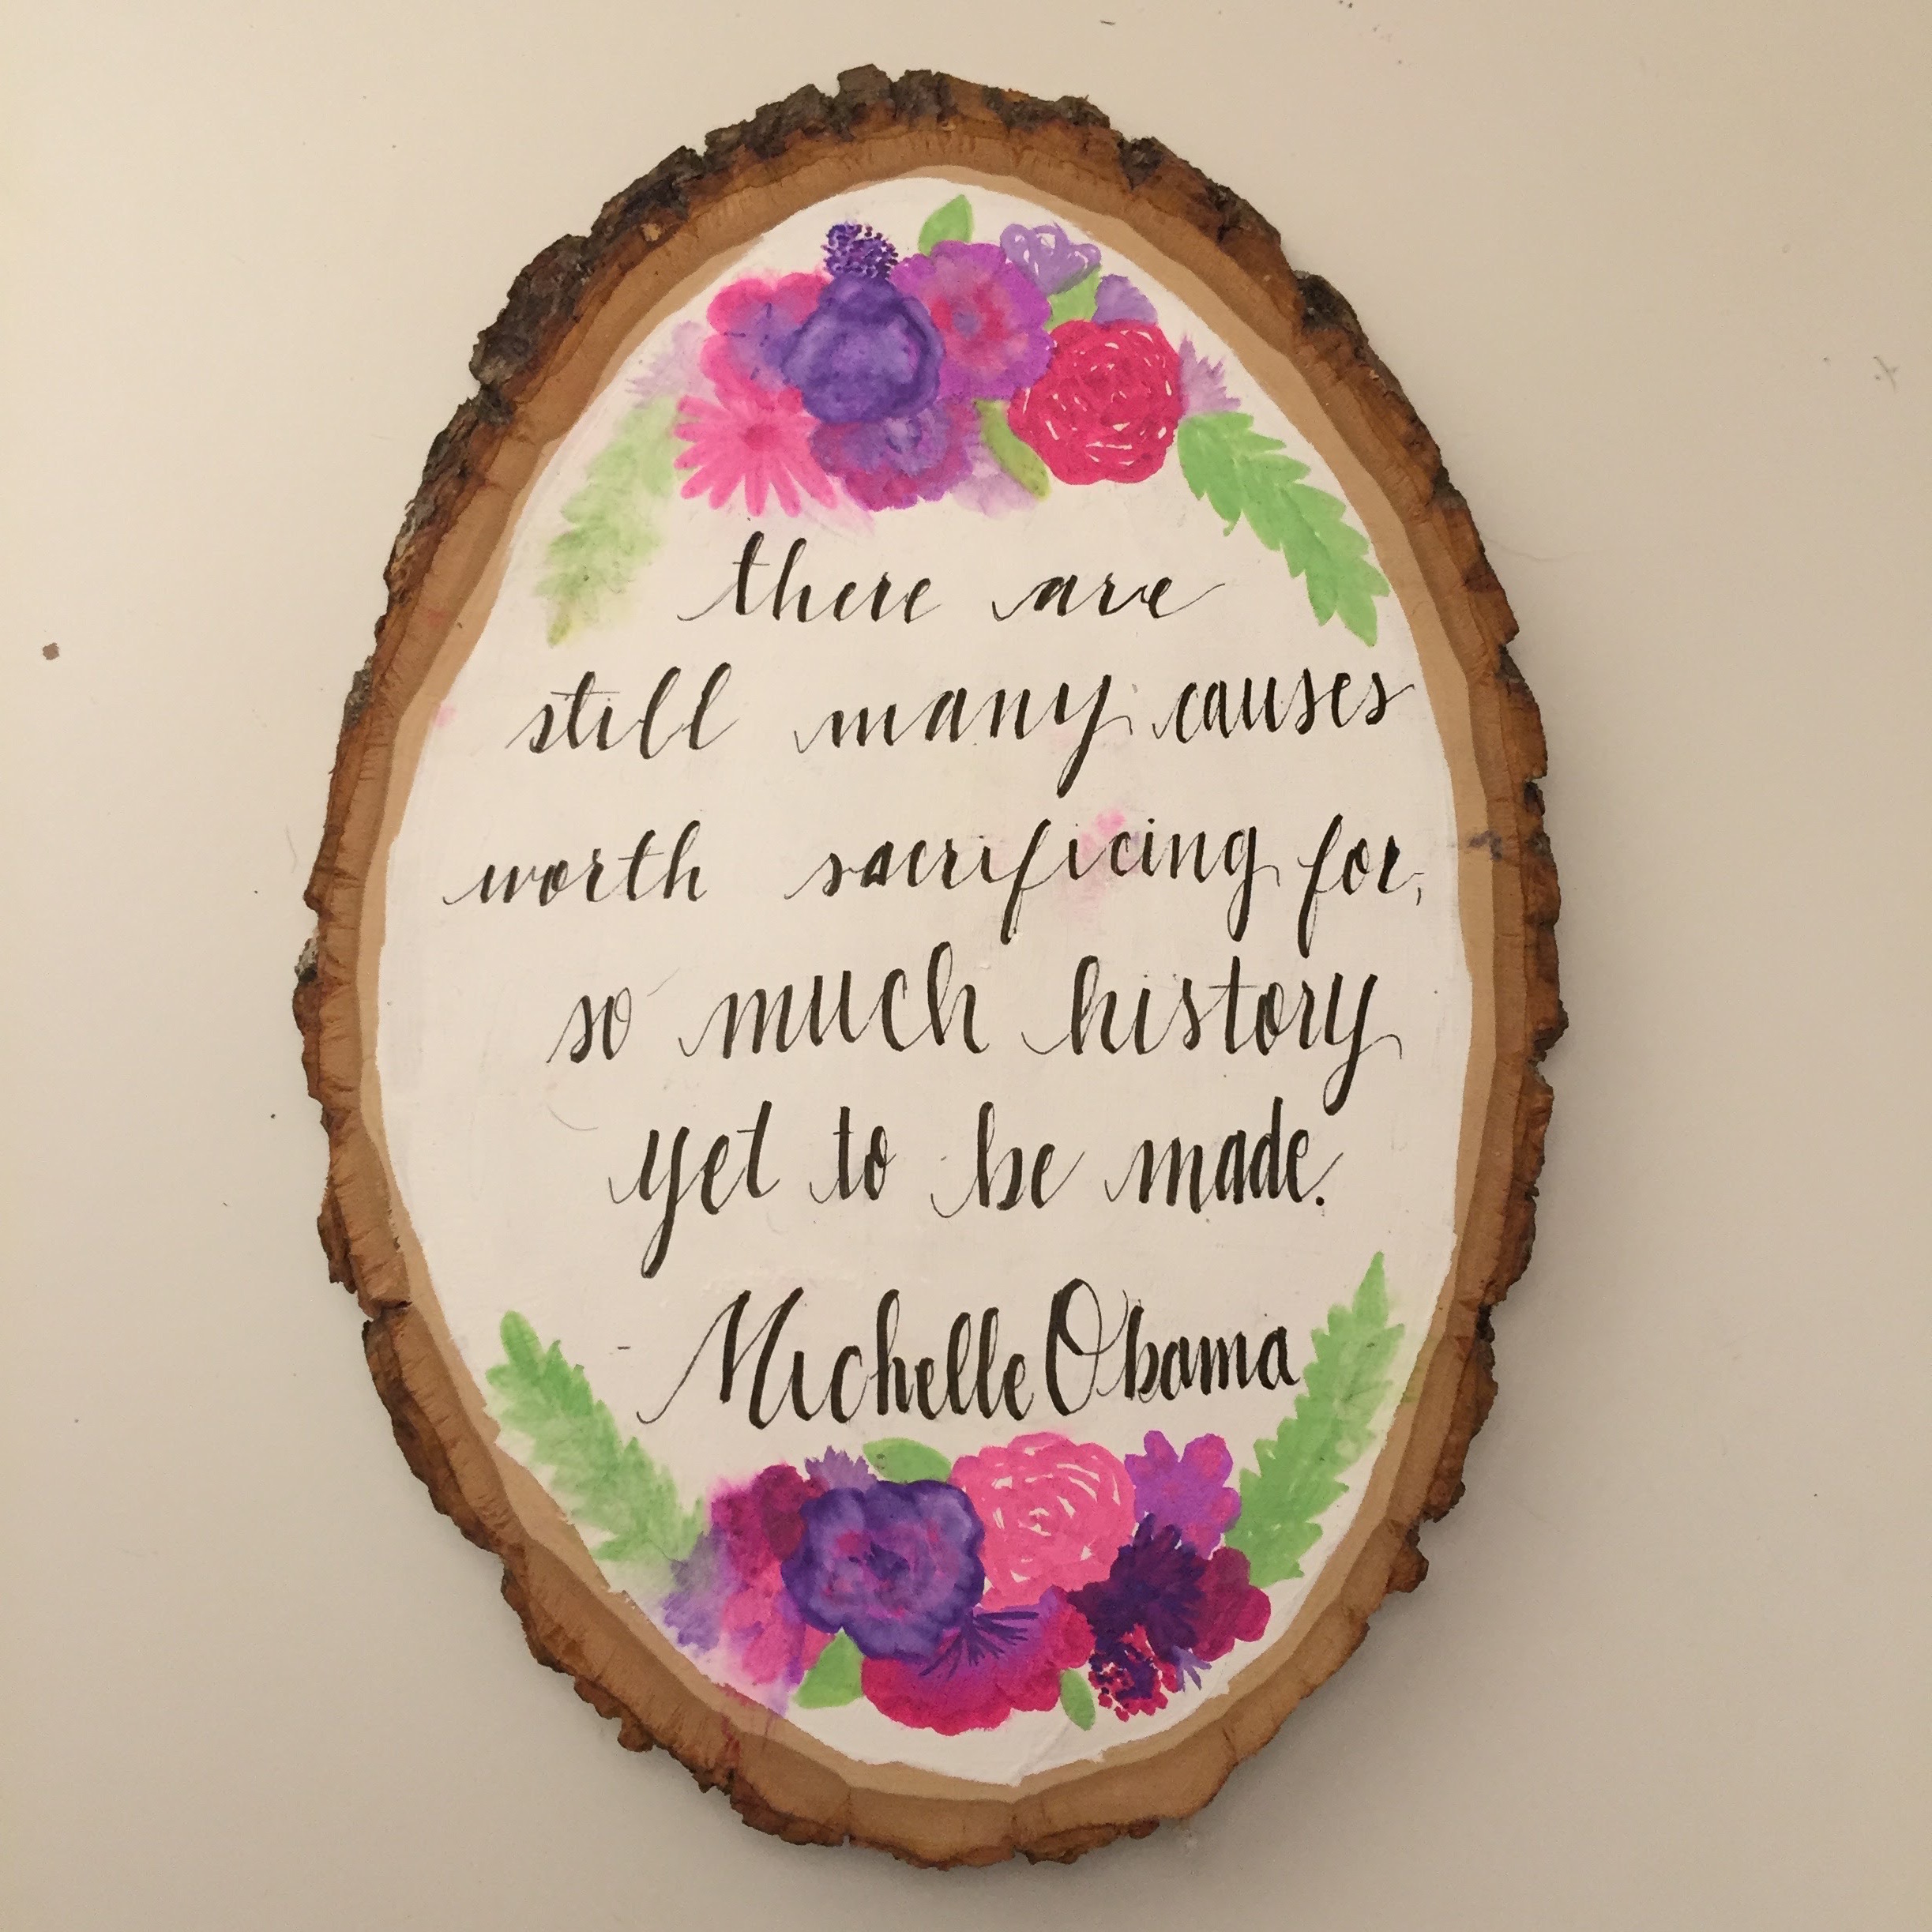 there are
still many causes
worth sacrificing for,
so much history
yet to be made.
- Michelle Obama